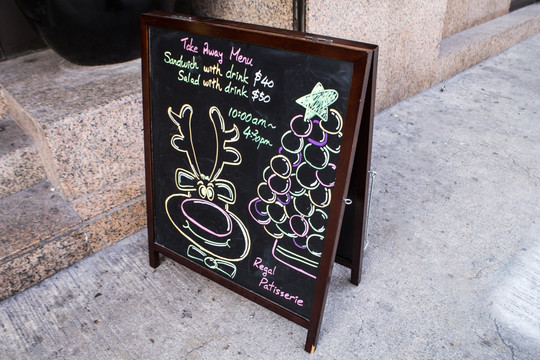 Take Away Menu
Sandwich with drink $40
Salad with drink $50
10:00am~
4:30pm
Regal
Patisserie